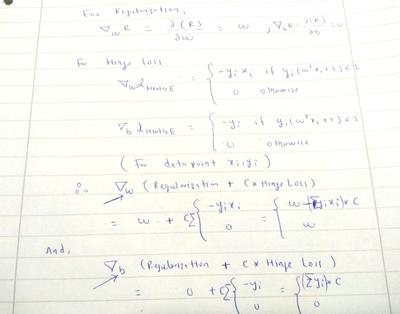 For Regularization,
∇_w R = ∂(R)/∂w = w , ∇_b R = ∂(R)/∂b = 0
For Hinge Loss
∇_w L_HINGE = { -y_i x_i if y_i(w^T x_i + b) < 1
0 otherwise
∇_b L_HINGE = { -y_i if y_i(w^T x_i + b) < 1
0 otherwise
( For datapoint x_i, y_i )
∴ ∇_w (Regularization + C × Hinge Loss)
= w + C Σ { -y_i x_i = { w - (Σ y_i x_i) * C
0 w
And,
∇_b (Regularization + C × Hinge Loss)
= 0 + C Σ { -y_i = { (Σ y_i) * C
0 0